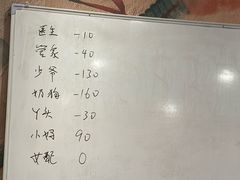 医生 -10
管家 -40
少爷 -130
奶狗 -160
丫头 -30
小妈 90
女配 0